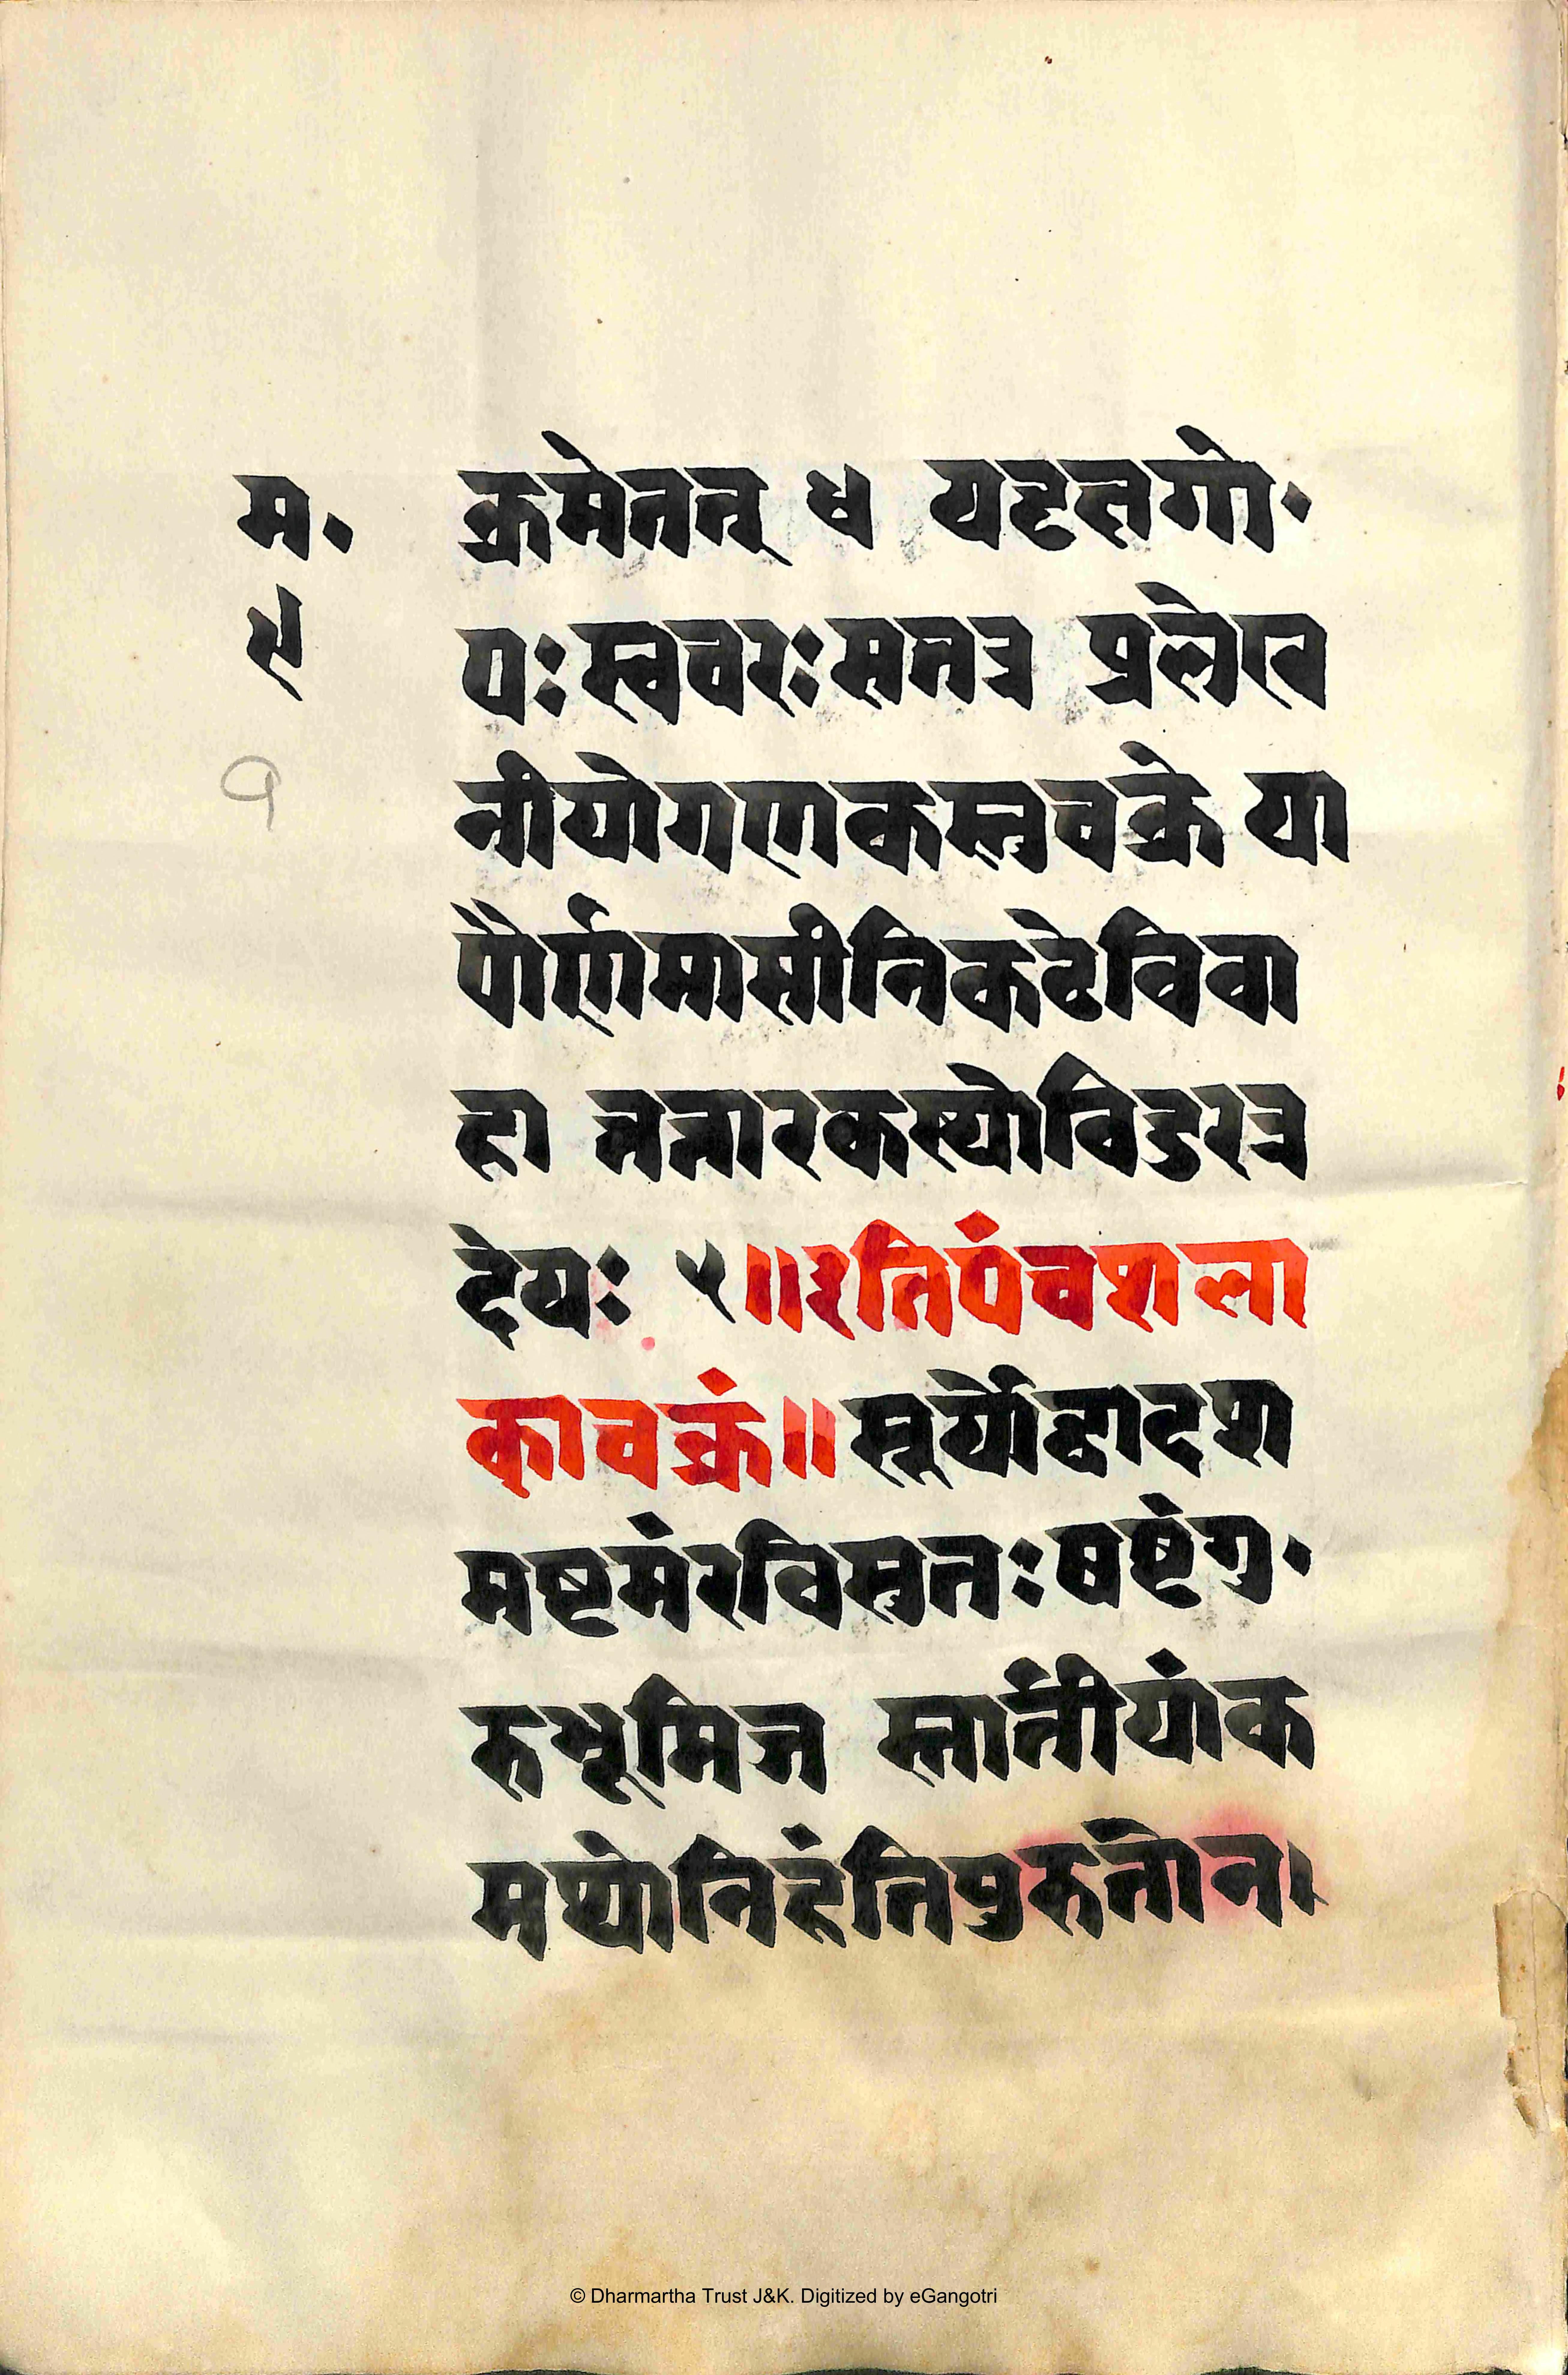 म॰
१
क्रमेतत् ४ यदृतगो॰
पः स्ववरः सतत्र प्रलेख
नीयोगणकस्तुचक्रे या
पौर्णमासीनिकटेविवा
हा त्तत्तारकस्योविडुरत्र
देयः ५॥इतिपंचशला
काचक्रं॥सूर्योद्वादश
मष्टमंरविसुतःषष्टंगु॰
रुभूमिज स्तार्तीयांक
मथोनिहंतिपुरुतोन।
© Dharmartha Trust J&K. Digitized by eGangotri